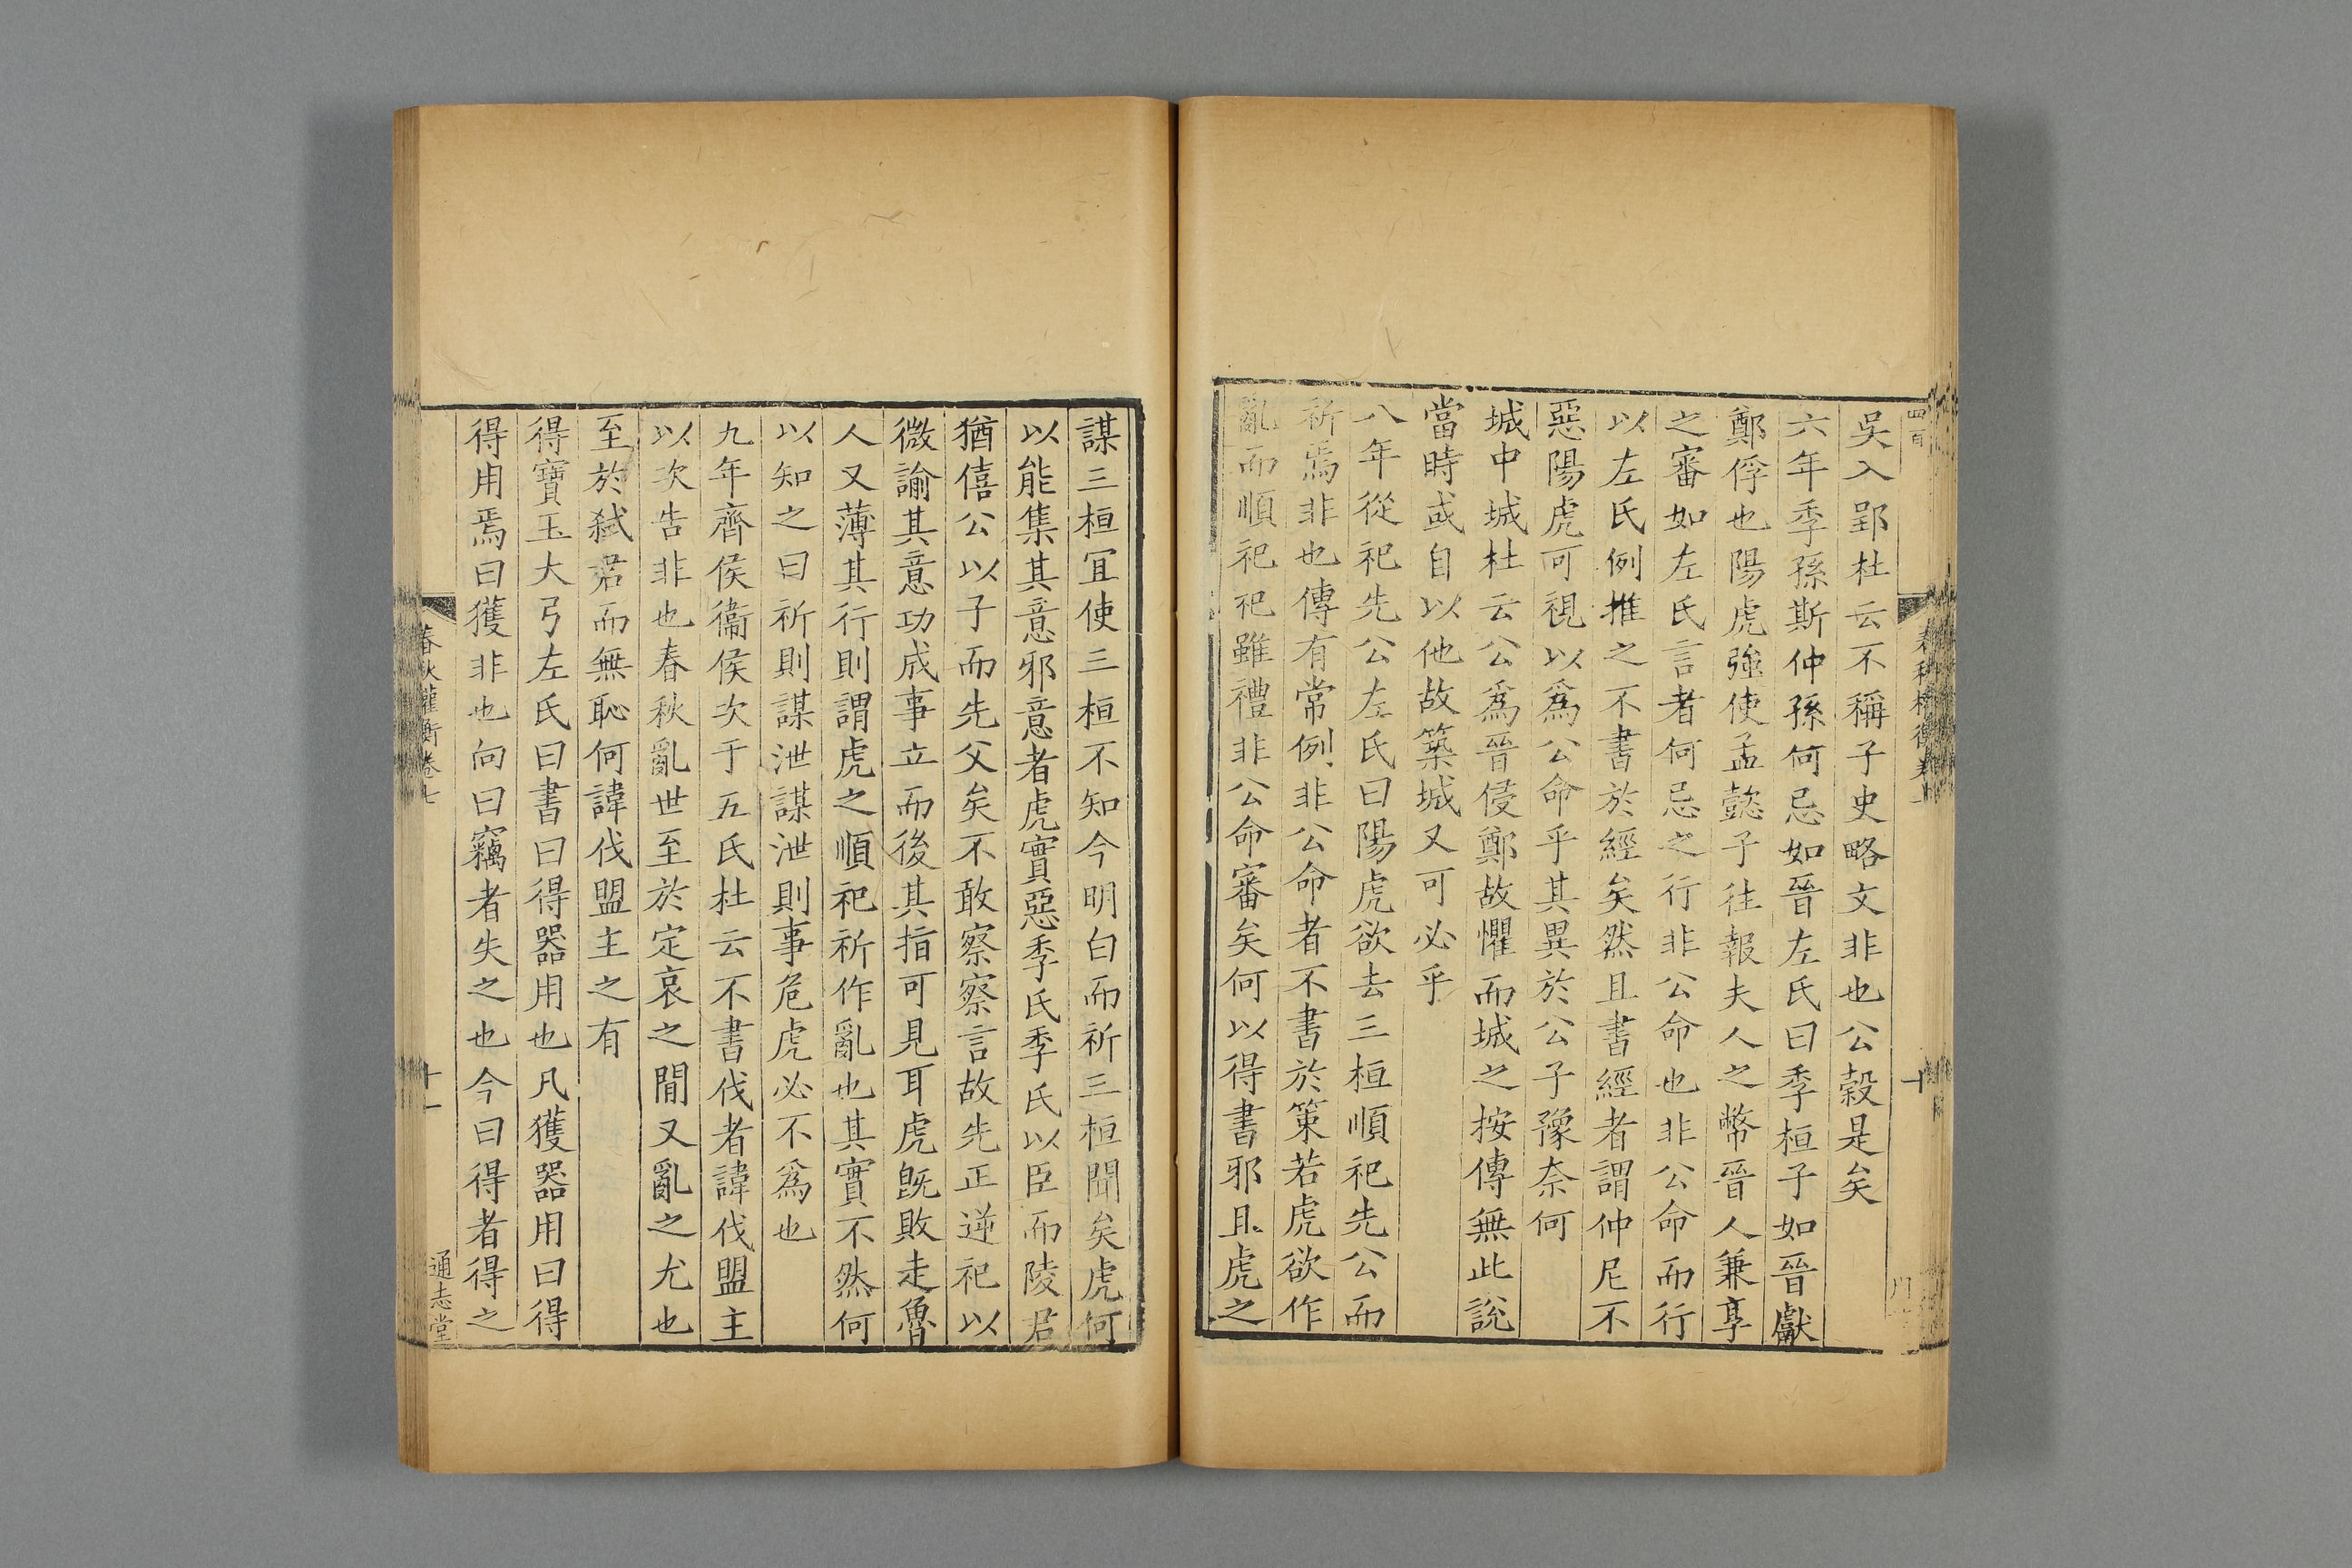 吳入郢杜云不稱子史略文非也公穀是矣
六年季孫斯仲孫何忌如晉左氏曰季桓子如晉獻
鄭俘也陽虎強使孟懿子往報夫人之幣晉人兼享
之審如左氏言者何忌之行非公命也非公命而行
以左氏例推之不書於經矣然且書經者謂仲尼不
惡陽虎可視以為公命乎其異於公子豫奈何
城中城杜云公為晉侵鄭故懼而城之按傳無此說
當時或自以他故築城又可必乎
八年從祀先公左氏曰陽虎欲去三桓順祀先公而
祈焉非也傳有常例非公命者不書於策若虎欲作
亂而順祀祀雖禮非公命審矣何以得書邪且虎之
謀三桓宜使三桓不知今明白而祈三桓聞矣虎何
以能集其意邪意者虎實惡季氏季氏以臣而陵君
猶僖公以子而先父矣不敢察察言故先正逆祀以
微諭其意功成事立而後其指可見耳虎既敗走魯
人又薄其行則謂虎之順祀祈作亂也其實不然何
以知之曰祈則謀泄謀泄則事危虎必不為也
九年齊侯衞侯次于五氏杜云不書伐者諱伐盟主
以次告非也春秋亂世至於定哀之閒又亂之尤也
至於弒君而無恥何諱伐盟主之有
得寶玉大弓左氏曰書曰得器用也凡獲器用曰得
得用焉曰獲非也向曰竊者失之也今曰得者得之
春秋權衡卷七
十一
通志堂